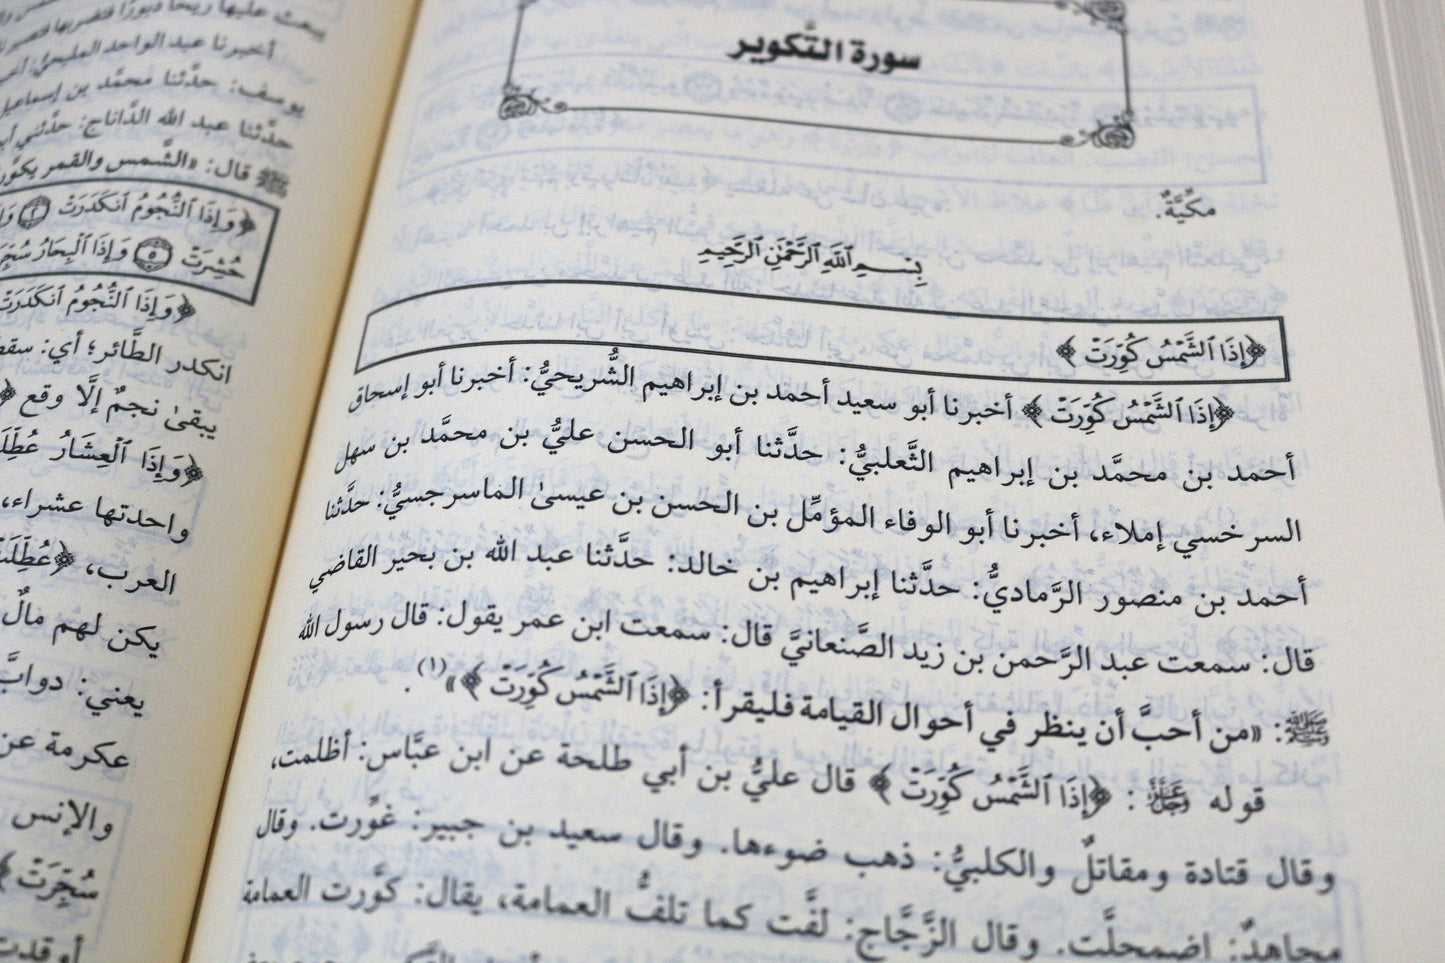 سورة التَّكوير
مكِّيَّةٌ.
بِسْمِ ٱللَّهِ ٱلرَّحْمَٰنِ ٱلرَّحِيمِ
﴿إِذَا ٱلشَّمْسُ كُوِّرَتْ ﴾
﴿إِذَا ٱلشَّمْسُ كُوِّرَتْ ﴾ أخبرنا أبو سعيد أحمد بن إبراهيم الشُّريحيُّ: أخبرنا أبو إسحاق
أحمد بن محمَّد بن إبراهيم الثَّعلبيُّ: حدَّثنا أبو الحسن عليُّ بن محمَّد بن سهل
السرخسي إملاء، أخبرنا أبو الوفاء المؤمِّل بن الحسن بن عيسىٰ الماسرجسيُّ: حدَّثنا
أحمد بن منصور الرَّماديُّ: حدَّثنا إبراهيم بن خالد: حدَّثنا عبد الله بن بحير القاضي
قال: سمعت عبد الرَّحمن بن زيد الصَّنعانيَّ قال: سمعت ابن عمر يقول: قال رسول الله
ﷺ: «من أحبَّ أن ينظر في أحوال القيامة فليقرأ: ﴿إِذَا ٱلشَّمْسُ كُوِّرَتْ ﴾»(١).
قوله عَزَّوَجَلَّ: ﴿إِذَا ٱلشَّمْسُ كُوِّرَتْ ﴾ قال عليُّ بن أبي طلحة عن ابن عبَّاس: أظلمت،
وقال قتادة ومقاتلٌ والكلبيُّ: ذهب ضوءها. وقال سعيد بن جبير: غوِّرت. وقال
مجاهدٌ: اضمحلَّت. وقال الزَّجَّاج: لفَّت كما تلفُّ العمامة، يقال: كوَّرت العمامة
أخبرنا عبد الواحد المليحيُّ:
يوسف: حدَّثنا محمَّد بن إسماعيل
حدَّثنا عبد الله الدَّاناج: حدَّثني
ﷺ قال: «الشَّمس والقمر
﴿وَإِذَا ٱلنُّجُومُ ٱنكَدَرَتْ ٢
حُشِرَتْ ٥ وَإِذَا ٱلْبِحَارُ
﴿وَإِذَا ٱلنُّجُومُ ٱنكَدَرَتْ
انكدر الطَّائر؛ أي:
يبقىٰ نجمٌ إلَّا وقع
﴿وَإِذَا ٱلْعِشَارُ
واحدتها عشراء،
العرب،
يكن لهم مالٌ
يعني:
عكرمة عن
والإنس
سُجِّرَتْ ﴾